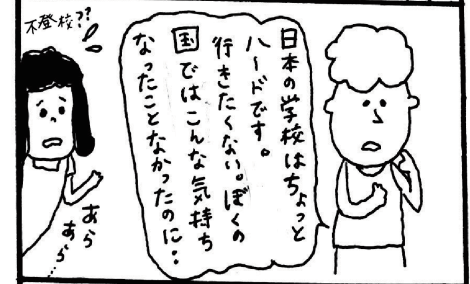 日本の学校はちょっと
ハードです。
行きたくない。ぼくの
国ではこんな気持ち
なったことなかったのに..
不登校??
あら
あら...